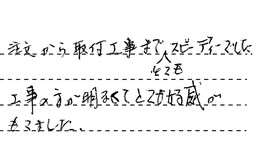 注文から取付工事までスピーディーでした
とても
工事の方が明るくてとても好感が
もてました。